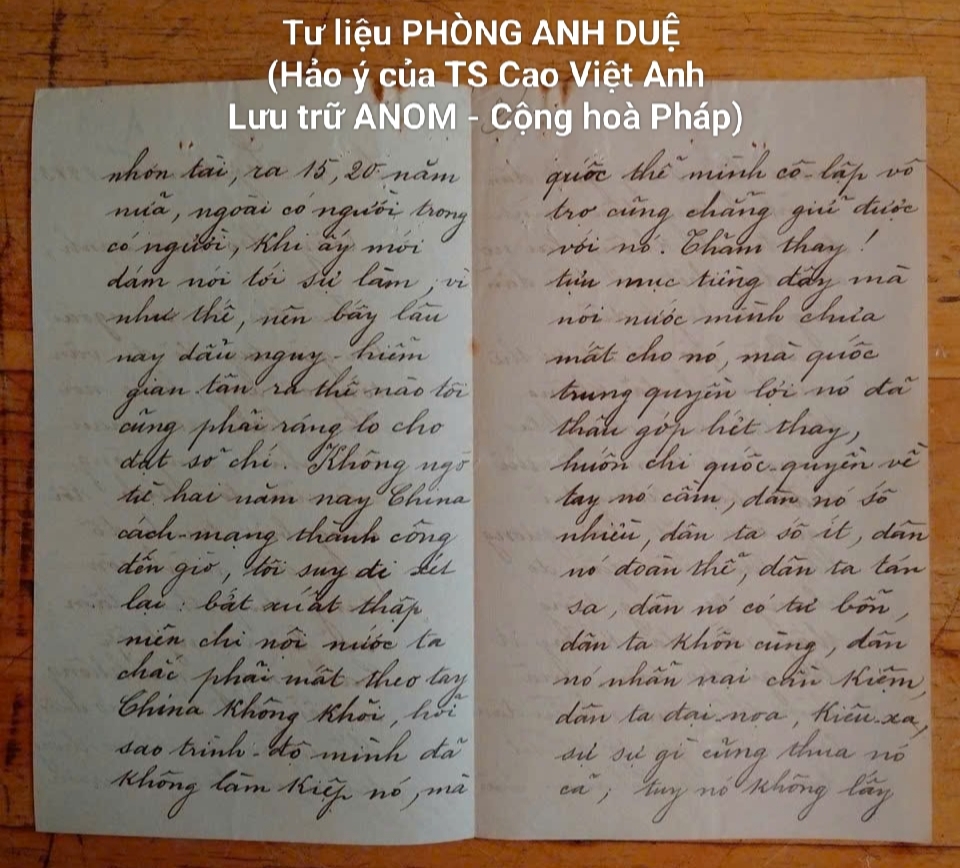 Tư liệu PHÒNG ANH DUỆ
(Hảo ý của TS Cao Việt Anh
Lưu trữ ANOM - Cộng hoà Pháp)
nhơn tài, ra 15, 20 năm
nữa, ngoài có người trong
có người, khi ấy mới
dám nói tới sự làm, vì
như thế, nên bấy lâu
nay dầu nguy-hiểm
gian-tân ra thế nào tôi
cũng phải ráng lo cho
đạt sở chí. Không ngờ
từ hai năm nay China
cách-mạng thành công
đến giờ, tôi suy đi xét
lại: bất xuất thập
niên chi nội nước ta
chắc phải mất theo tay
China không khỏi, bởi
sao trình-độ mình đã
không làm kiệp nó, mà
quốc thể mình cô-lập vô
trợ cũng chẳng giữ được
với nó. Thảm thay!
tựu mục tiếng đây mà
nói nước mình chưa
mất cho nó, mà quốc
trung quyền lợi nó đã
thâu góp hết thay,
huốn chi quốc-quyền về
tay nó cầm, dân nó số
nhiều, dân ta số ít, dân
nó đoàn thể, dân ta tan
sa, dân nó có tư bổn,
dân ta khốn cùng, dân
nó nhẫn nai cần kiệm,
dân ta đại noa, kiêu-xa,
sự sự gì cũng thua nó
cả; tuy nó không lấy